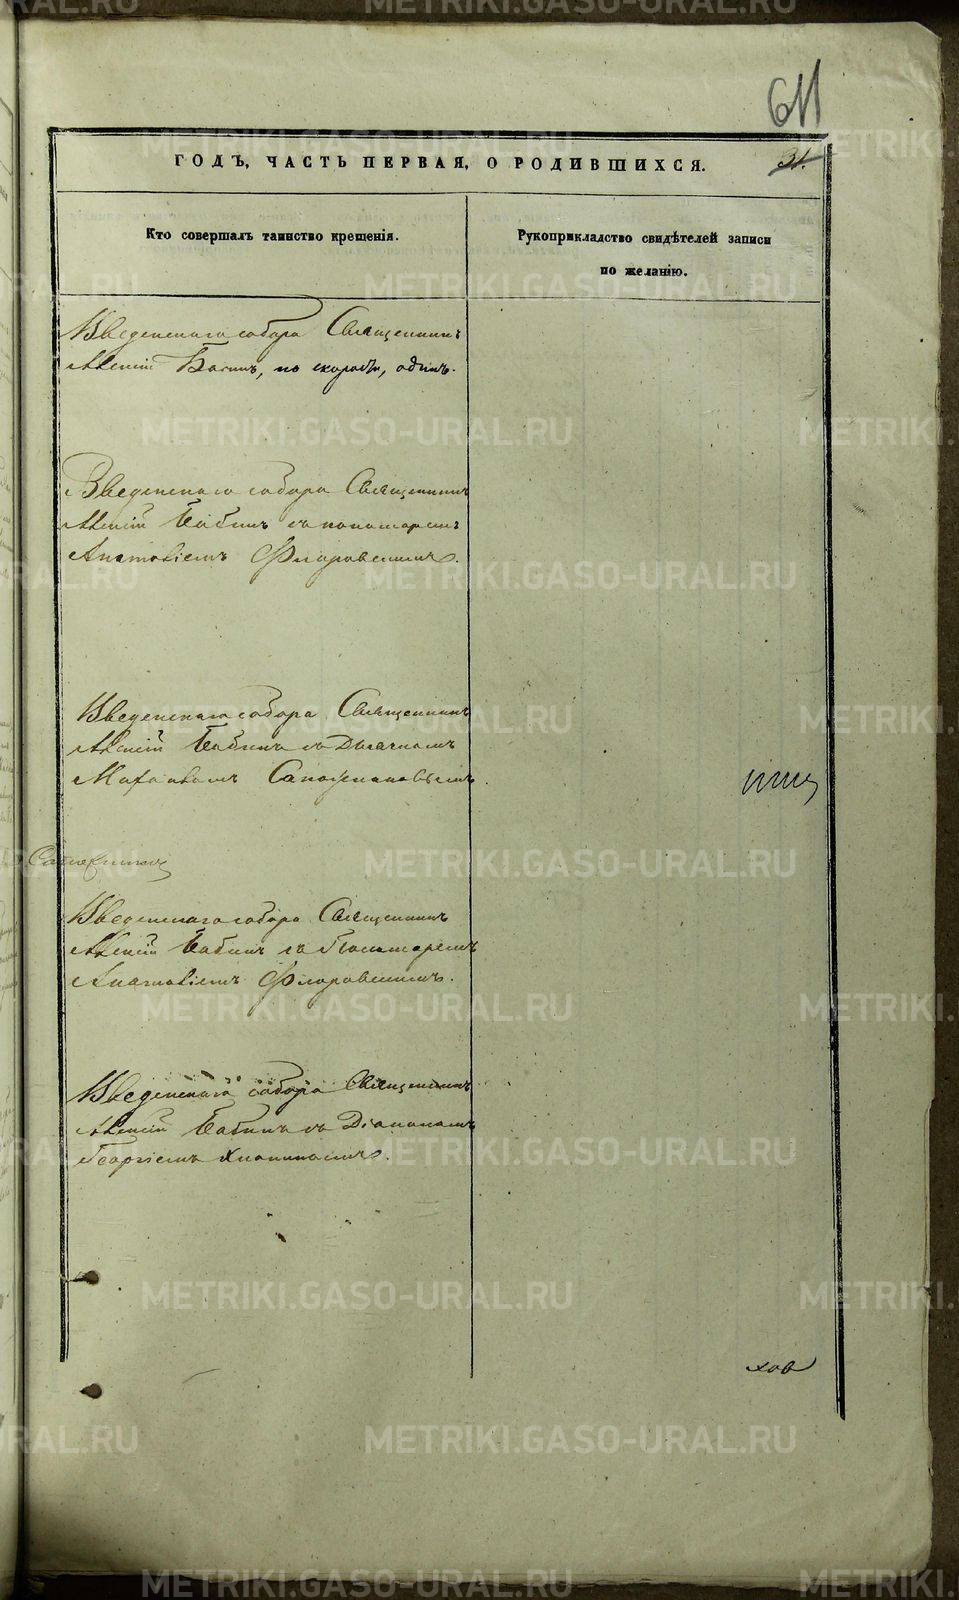 611
ГОДЪ, ЧАСТЬ ПЕРВАЯ, О РОДИВШИХСЯ. 31.
Кто совершалъ таинство крещенія.
Рукоприкладство свидѣтелей записи
по желанію.
Введенскаго собора Священникъ
Алексій Бабинъ, по скорости, одинъ.
Введенскаго собора Священникъ
Алексій Бабинъ съ пономаремъ
Анатоліемъ Флоровскимъ.
Введенскаго собора Священникъ
Алексій Бабинъ съ Дьячкомъ
Михаиломъ Сапожниковымъ
Введенскаго собора Священникъ
Алексій Бабинъ съ Пономаремъ
Анатоліемъ Флоровскимъ.
Введенскаго собора Священникъ
Алексій Бабинъ съ Діакономъ
Георгіемъ
ховъ
METRIKI.GASO-URAL.RU